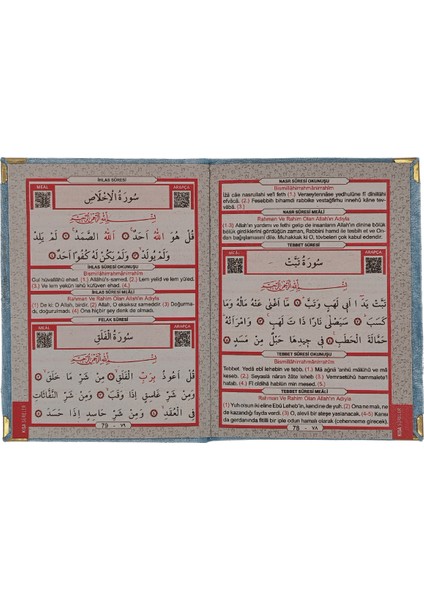 NASR SÛRESİ OKUNUŞU
Bismillâhirrahmânirrahîm
İzâ câe nasrullahi ve'l feth (1.) Veraeytennâse yedhulûne fî dînillâhi
efvâcâ. (2.) Fesebbih bihamdi rabbike vestağfirhu innehû kâne tev-
vâbâ. (3.)
NASR SÛRESİ MEÂLİ
Rahman Ve Rahim Olan Allah'ın Adıyla
(1-3) Allah'ın yardımı ve fethi gelip de insanların Allah'ın dinine bölük
bölük girdiklerini gördüğün zaman, Rabbini hamd ile tesbih et ve On-
dan bağışlanmasını dile. Muhakkak ki O, tövbeleri çok kabul edendir.
TEBBET SÛRESİ
MEÂL
ARAPÇA
سُورَةُ تَبَّتْ
بِسْمِ اللّٰهِ الرَّحْمٰنِ الرَّحِيمِ
تَبَّتْ يَدَٓا اَبِي لَهَبٍ وَتَبَّ ۝ مَٓا اَغْنٰى عَنْهُ مَالُهُ وَمَا
كَسَبَ ۝ سَيَصْلٰى نَارًا ذَاتَ لَهَبٍ ۝ وَامْرَاَتُهُ
حَمَّالَةَ الْحَطَبِ ۝ فِي جِيدِهَا حَبْلٌ مِنْ مَسَدٍ ۝
TEBBET SÛRESİ OKUNUŞU
Bismillâhirrahmânirrahîm
Tebbet. Yedâ ebî lehebin ve tebb. (1.) Mâ ağnâ 'anhü mâlühû ve mâ
keseb. (2.) Seyaslâ nâran zâte leheb. (3.) Vemraetühû hammalete'l
hatab. (4.) Fî cîdihâ hablün min mesed. (5.)
TEBBET SÛRESİ MEÂLİ
Rahman Ve Rahim Olan Allah'ın Adıyla
(1) Yuh olsun iki eline Ebû Leheb'in, kendine de yuh. (2) Ona ne malı, ne
de kazandığı fayda verdi. (3) O, alevli bir ateşe yaslanacak. (4-5) Karısı
da gerdanında fitilli bir iple odun hamalı olarak (cehenneme girecek).
78 - ٧٨
KISA SÛRELER
İHLAS SÛRESİ
MEÂL
ARAPÇA
سُورَةُ الْاِخْلَاصِ
بِسْمِ اللّٰهِ الرَّحْمٰنِ الرَّحِيمِ
قُلْ هُوَ اللّٰهُ اَحَدٌ ۝ اَللّٰهُ الصَّمَدُ ۝ لَمْ يَلِدْ
وَلَمْ يُولَدْ ۝ وَلَمْ يَكُنْ لَهُ كُفُوًا اَحَدٌ ۝
İHLAS SÛRESİ OKUNUŞU
Bismillâhirrahmânirrahîm
Cul hüvallâhü ehad. (1.) Allâhü's samed. (2.) Lem yelid ve lem yûled.
(3.) Ve lem yekün lehû küfüven ehad. (4.)
İHLAS SÛRESİ MEÂLİ
Rahman Ve Rahim Olan Allah'ın Adıyla
(1) De ki: O Allah, birdir. (2) Allah, O eksiksiz sameddir. (3) Doğurma-
dı, doğurulmadı. (4) Ona hiçbir şey denk de olmadı.
FELAK SÛRESİ
MEÂL
ARAPÇA
سُورَةُ الْفَلَقِ
بِسْمِ اللّٰهِ الرَّحْمٰنِ الرَّحِيمِ
قُلْ اَعُوذُ بِرَبِّ الْفَلَقِ ۝ مِنْ شَرِّ مَا خَلَقَ ۝
وَمِنْ شَرِّ غَاسِقٍ اِذَا وَقَبَ ۝ وَمِنْ شَرِّ النَّفَّاثَاتِ
فِي الْعُقَدِ ۝ وَمِنْ شَرِّ حَاسِدٍ اِذَا حَسَدَ ۝
79 - ٧٩
KISA SÛRELER